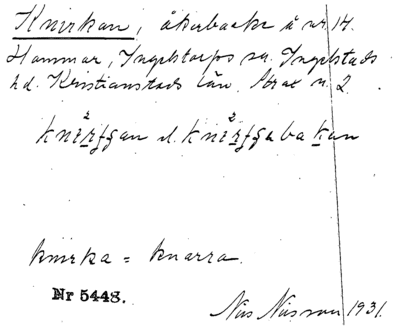 Knirkan, åkerbacke å nr. 14.
Hammar, Ingelstorps sn. Ingelstads
hd. Kristianstads län.
knirfgan el. knirfga bakan
knirka = knarra.
Nr 5448.
Nils Nilsson 1931.